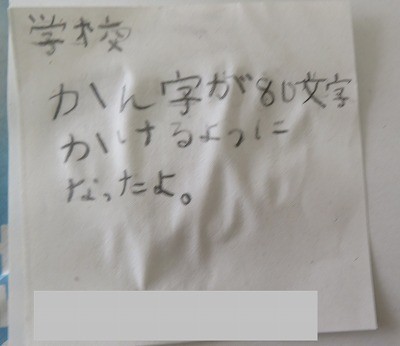 学校
かん字が80文字
かけるように
なったよ。